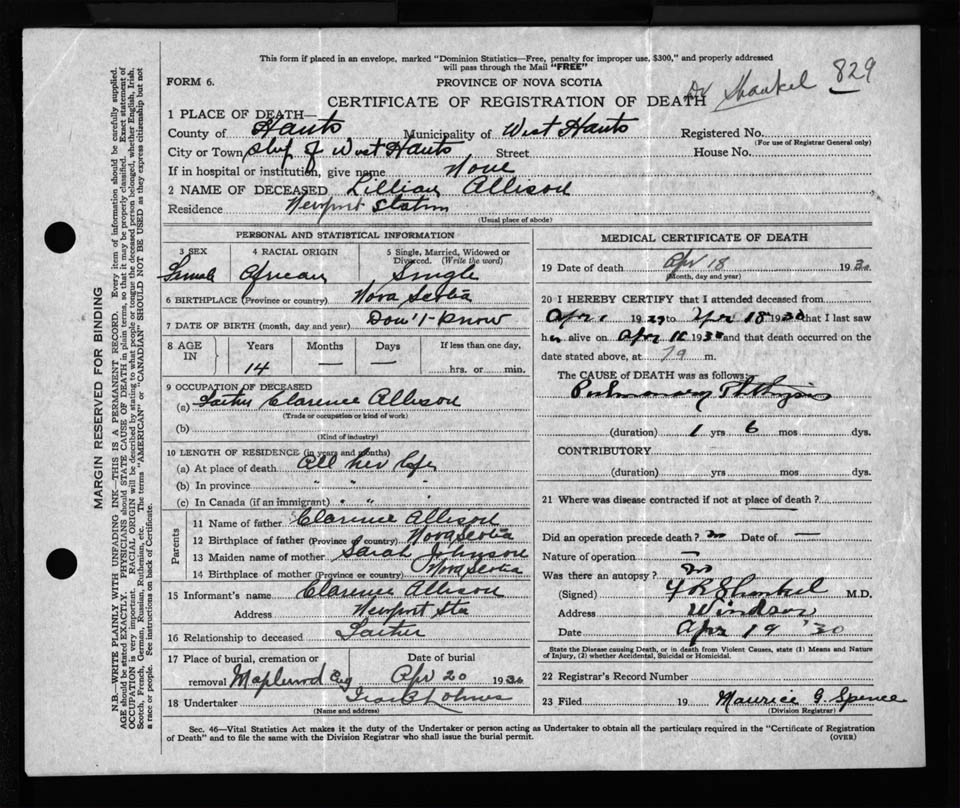 This form if placed in an envelope, marked "Dominion Statistics—Free, penalty for improper use, $300," and properly addressed
will pass through the Mail "FREE"
FORM 6.
PROVINCE OF NOVA SCOTIA
829
CERTIFICATE OF REGISTRATION OF DEATH
Dr Shankel
1 PLACE OF DEATH—
County of Hants Municipality of West Hants Registered No.
(For use of Registrar General only)
City or Town of West Hants Street House No.
If in hospital or institution, give name None
2 NAME OF DECEASED Lillian Allison
Residence Newport Station
(Usual place of abode)
PERSONAL AND STATISTICAL INFORMATION
3 SEX 4 RACIAL ORIGIN 5 Single, Married, Widowed or
Divorced. (Write the word)
Female African Single
6 BIRTHPLACE (Province or country) Nova Scotia
7 DATE OF BIRTH (month, day and year) Don't-Know
8 AGE IN Years Months Days If less than one day,
14 — — hrs. or min.
9 OCCUPATION OF DECEASED
(a) Clarence Allison
(Trade or occupation or kind of work)
(b)
(Kind of industry)
10 LENGTH OF RESIDENCE (in years and months)
(a) At place of death All her life
(b) In province " " "
(c) In Canada (if an immigrant) " " "
Parents
11 Name of father Clarence Allison
12 Birthplace of father (Province or country) Nova Scotia
13 Maiden name of mother Sarah Johnson
14 Birthplace of mother (Province or country) Nova Scotia
15 Informant's name Clarence Allison
Address Newport Sta
16 Relationship to deceased Father
17 Place of burial, cremation or Date of burial
removal Maplewood Apr 20 1930
18 Undertaker
(Name and address)
MEDICAL CERTIFICATE OF DEATH
19 Date of death Apr 18 1930
(Month, day and year)
20 I HEREBY CERTIFY that I attended deceased from
Apr 1 1929 to Apr 18 1930 that I last saw
her alive on Apr 1930 and that death occurred on the
date stated above, at m.
The CAUSE of DEATH was as follows:
Pulmonary Phthisis
(duration) 1 yrs 6 mos dys.
CONTRIBUTORY
(duration) yrs. mos. dys.
21 Where was disease contracted if not at place of death?
Did an operation precede death? no Date of —
Nature of operation —
Was there an autopsy? no
(Signed) F R Shankel M.D.
Address Windsor
Date Apr 19 '30
State the Disease causing Death, or in death from Violent Causes, state (1) Means and Nature
of Injury, (2) whether Accidental, Suicidal or Homicidal.
22 Registrar's Record Number
23 Filed 19 Maurice G. Spence
(Division Registrar)
Sec. 46—Vital Statistics Act makes it the duty of the Undertaker or person acting as Undertaker to obtain all the particulars required in the "Certificate of Registration
of Death" and to file the same with the Division Registrar who shall issue the burial permit.
(OVER)
MARGIN RESERVED FOR BINDING
N.B.—WRITE PLAINLY WITH UNFADING INK—THIS IS A PERMANENT RECORD. Every item of information should be carefully supplied.
AGE should be stated EXACTLY. PHYSICIANS should STATE CAUSE OF DEATH in plain terms, so that it may be properly classified. Exact statement of
OCCUPATION is very important. RACIAL ORIGIN will be described by stating to what people or tongue the deceased person belonged, whether English, Irish,
Scotch, French, German, Russian, Ruthenian, etc. The terms "AMERICAN" or "CANADIAN" SHOULD NOT BE USED as they express citizenship but not
a race or people. See instructions on back of Certificate.